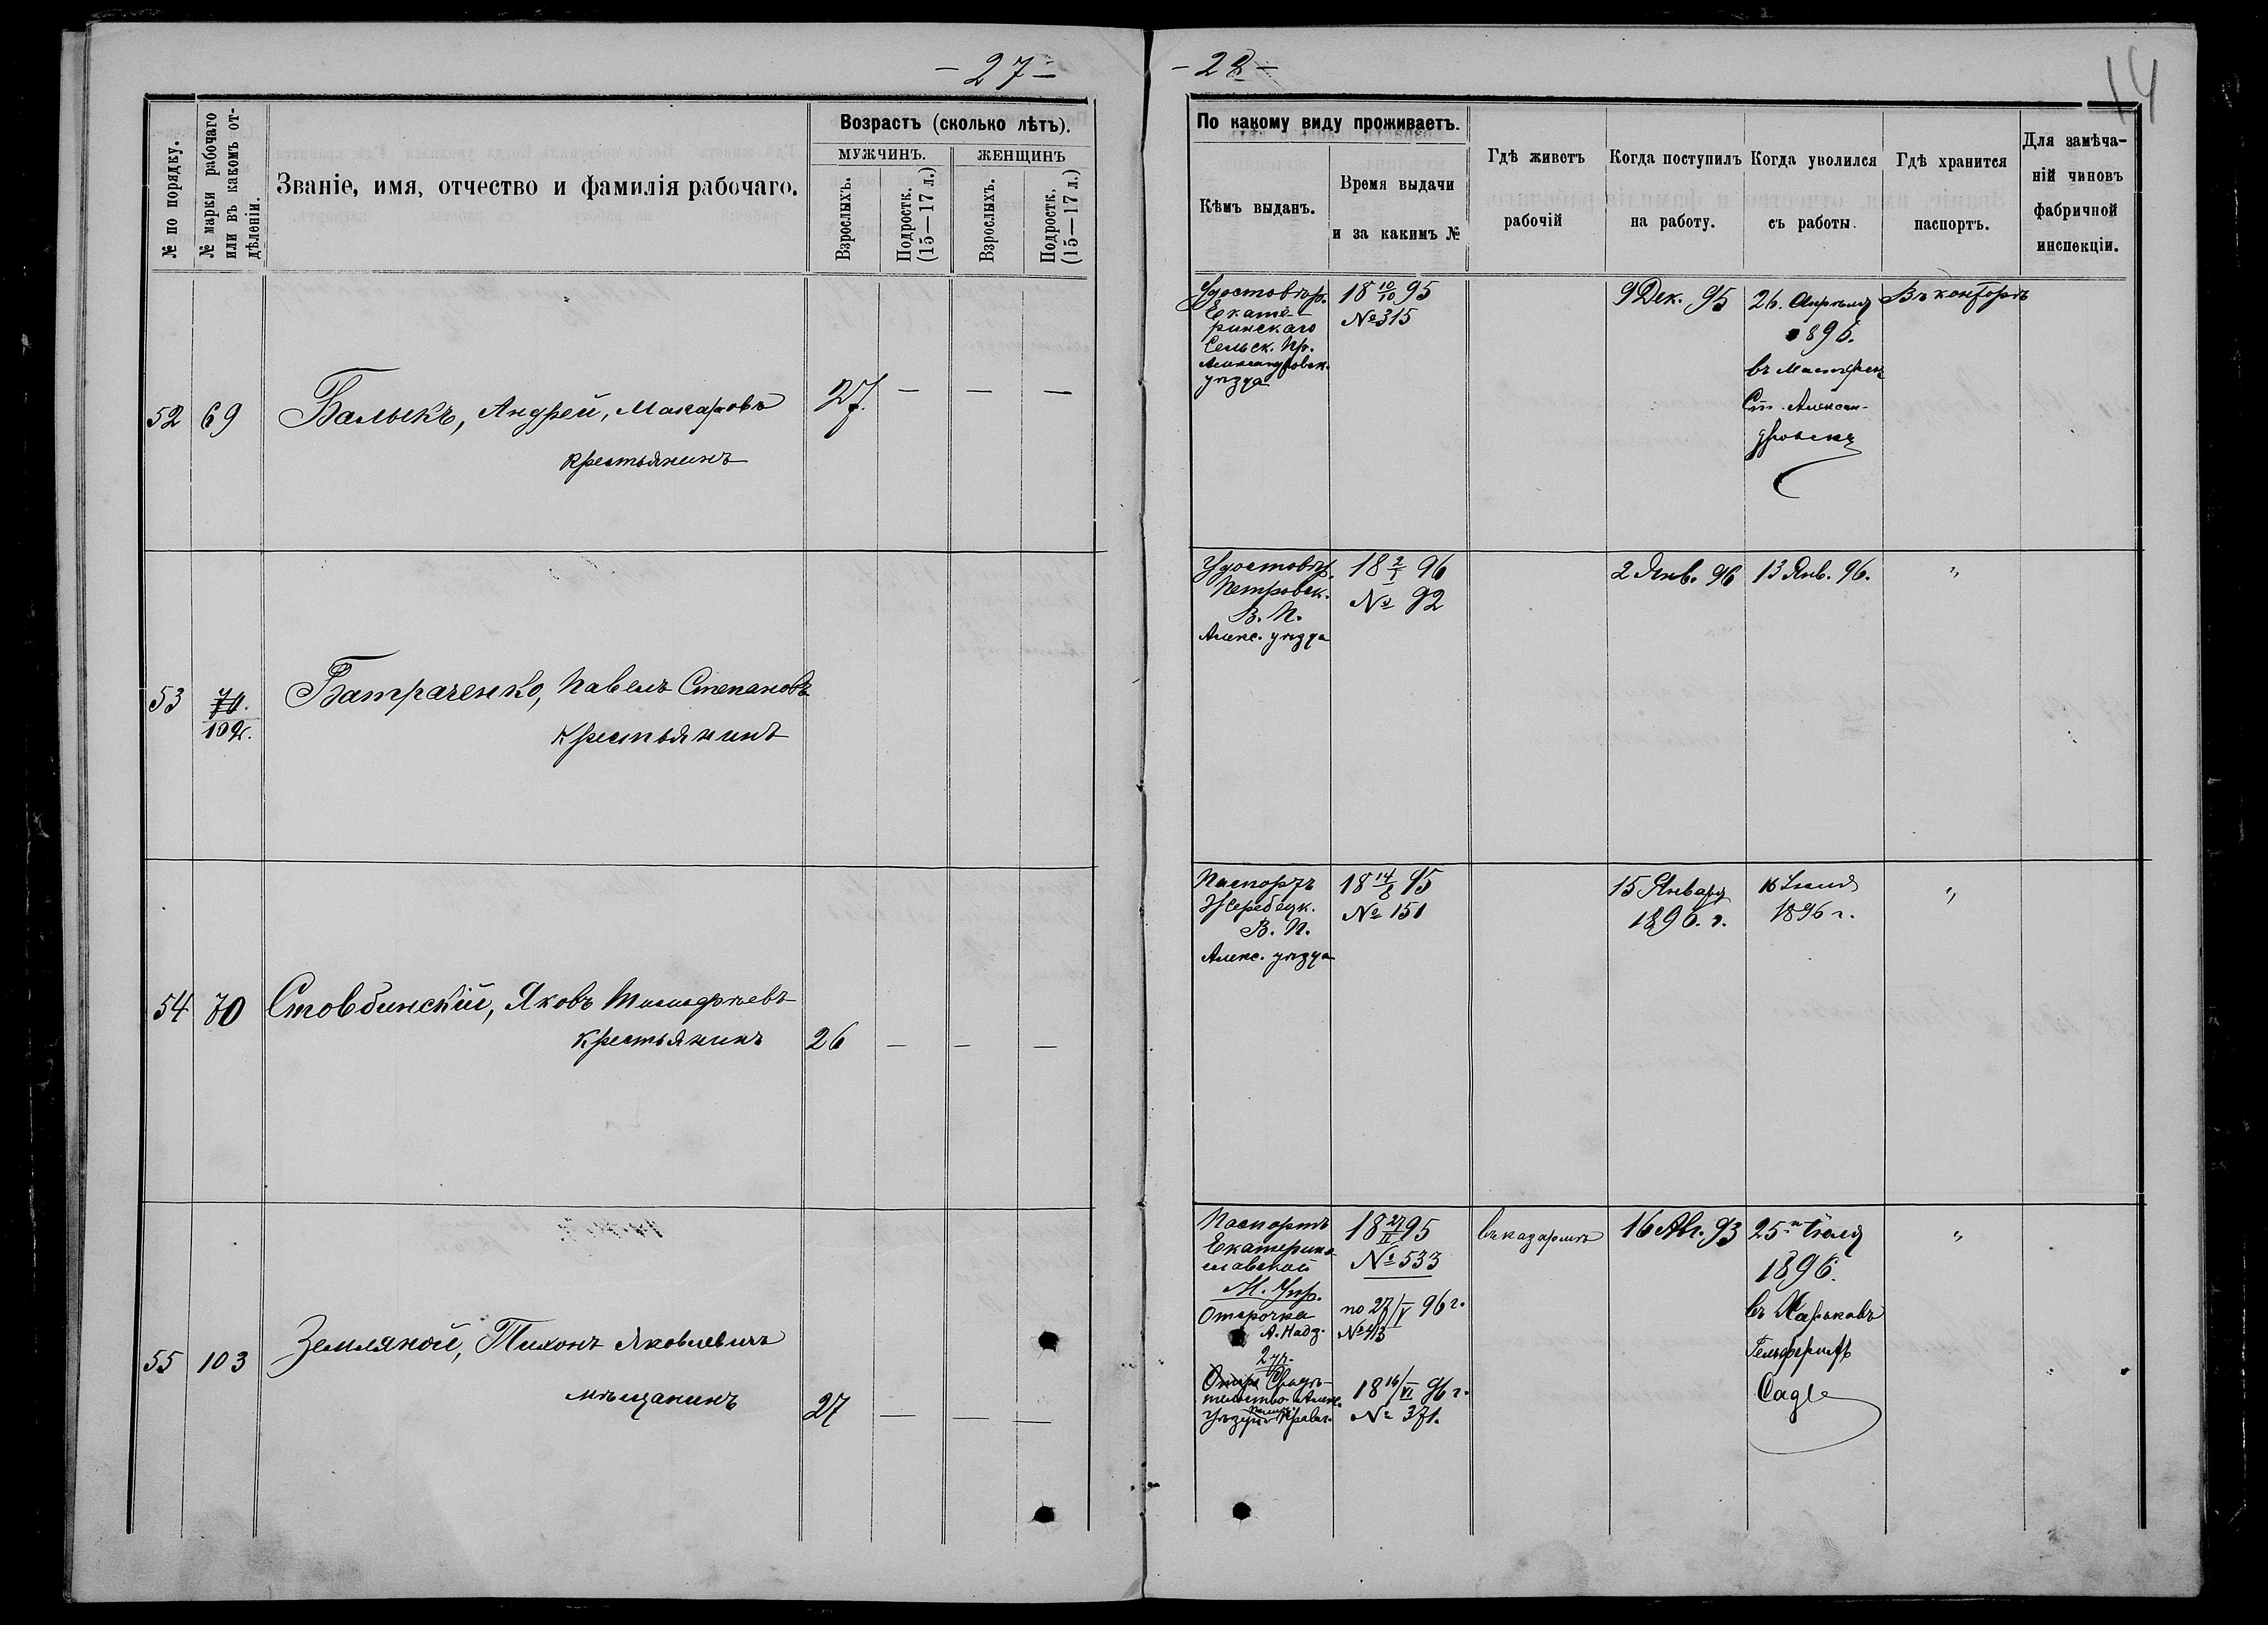 - 27 -
№ по порядку.
№ марки рабочаго
или въ какомъ от-
дѣленіи.
Званіе, имя, отчество и фамилія рабочаго.
Возрастъ (сколько лѣтъ).
МУЖЧИНЪ.
ЖЕНЩИНЪ
Взрослыхъ.
Подростк.
(15—17 л.)
Взрослыхъ.
Подростк.
(15—17 л.)
52 69 Балыкъ, Андрей, Макаровъ 27. — — —
крестьянинъ
53 70.
102.
Батраченко, Павелъ Степановъ
крестьянинъ
54 70 Стовбинскій, Яковъ
крестьянинъ 26 — — —
55 103 Земляной, Тихонъ Яковлевичъ
мѣщанинъ 27 — — —
- 28 -
14
По какому виду проживаетъ.
Кѣмъ выданъ.
Время выдачи
и за какимъ №
Гдѣ живетъ
рабочій
Когда поступилъ
на работу.
Когда уволился
съ работы.
Гдѣ хранится
паспортъ.
Для замѣча-
ній чиновъ
фабричной
инспекціи.
Удостовѣр.
Екате-
ринскаго
Сельск. Пр.
Александровск.
уѣзда
18 10/10 95
№ 315
9 Дек. 95
26. Апрѣля
1896.
въ
Ст. Алексан-
дровскъ
Въ конторѣ
Удостовѣр.
Петровск.
В. П.
Алекс. уѣзда
18 2/I 96
№ 92
2 Янв. 96
13 Янв. 96.
"
Паспортъ
Жеребецк.
В. П.
Алекс. уѣзда
18 14/8 95
№ 151
15 Января
1896. г.
1896 г.
"
Паспортъ
Екатерино-
славской
М. Упр.
Отсрочка
А. Надз.
18 27/II 95
№ 533
по 27/V 96 г.
№ 43
Свидѣ-
тельство Алекс.
Уѣздн. Правл.
18 16/VI 96 г.
№ 371.
въ казармѣ
16 Авг. 93
25-го Іюля
1896.
въ Харьковъ
Гельферихъ
Саде
"